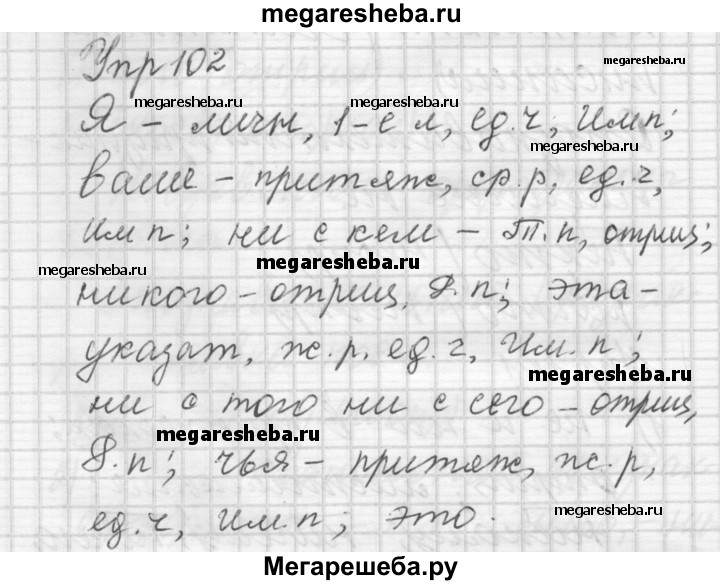 megaresheba.ru
Упр 102
megaresheba.ru megaresheba.ru megaresheba.ru
Я - личн, 1-е л, ед.ч, Им.п;
megaresheba.ru
ваше - притяж, ср.р, ед.ч,
Им п; ни с кем - Т.п, отриц;
megaresheba.ru megaresheba.ru
никого - отриц, Р.п; эта -
указат, ж.р, ед.ч, Им.п;
megaresheba.ru
ни с того ни с сего - отриц,
megaresheba.ru
Р.п; чья - притяж, ж.р,
ед.ч, Им.п; это.
megaresheba.ru
Мегарешеба.ру